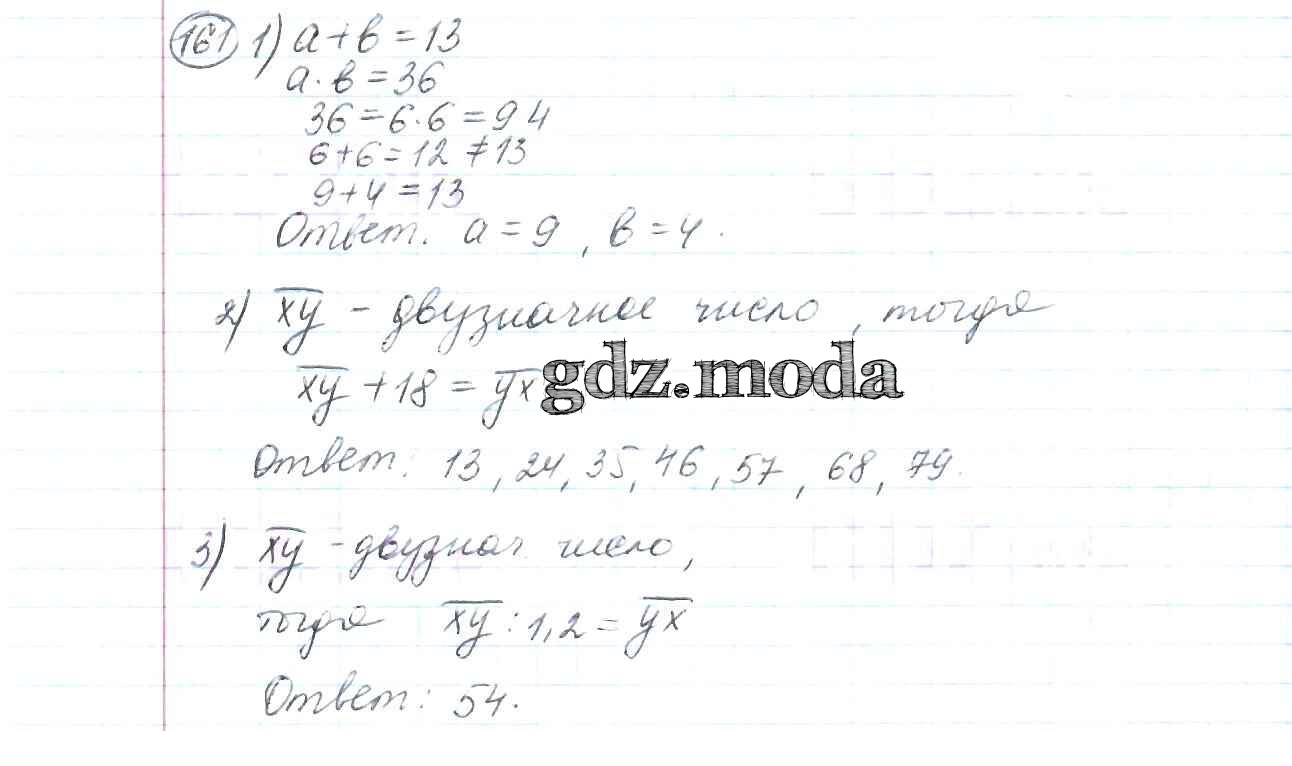 161 1) a + b = 13
a · b = 36
36 = 6 · 6 = 9 4
6 + 6 = 12 ≠ 13
9 + 4 = 13
Ответ. a = 9 , b = 4 .
2) x̅y̅ - двузначное число , тогда
x̅y̅ + 18 = y̅x̅
gdz.moda
Ответ: 13 , 24, 35, 46 , 57 , 68, 79.
3) x̅y̅ - двузнач. число ,
тогда x̅y̅ : 1,2 = y̅x̅
Ответ: 54.